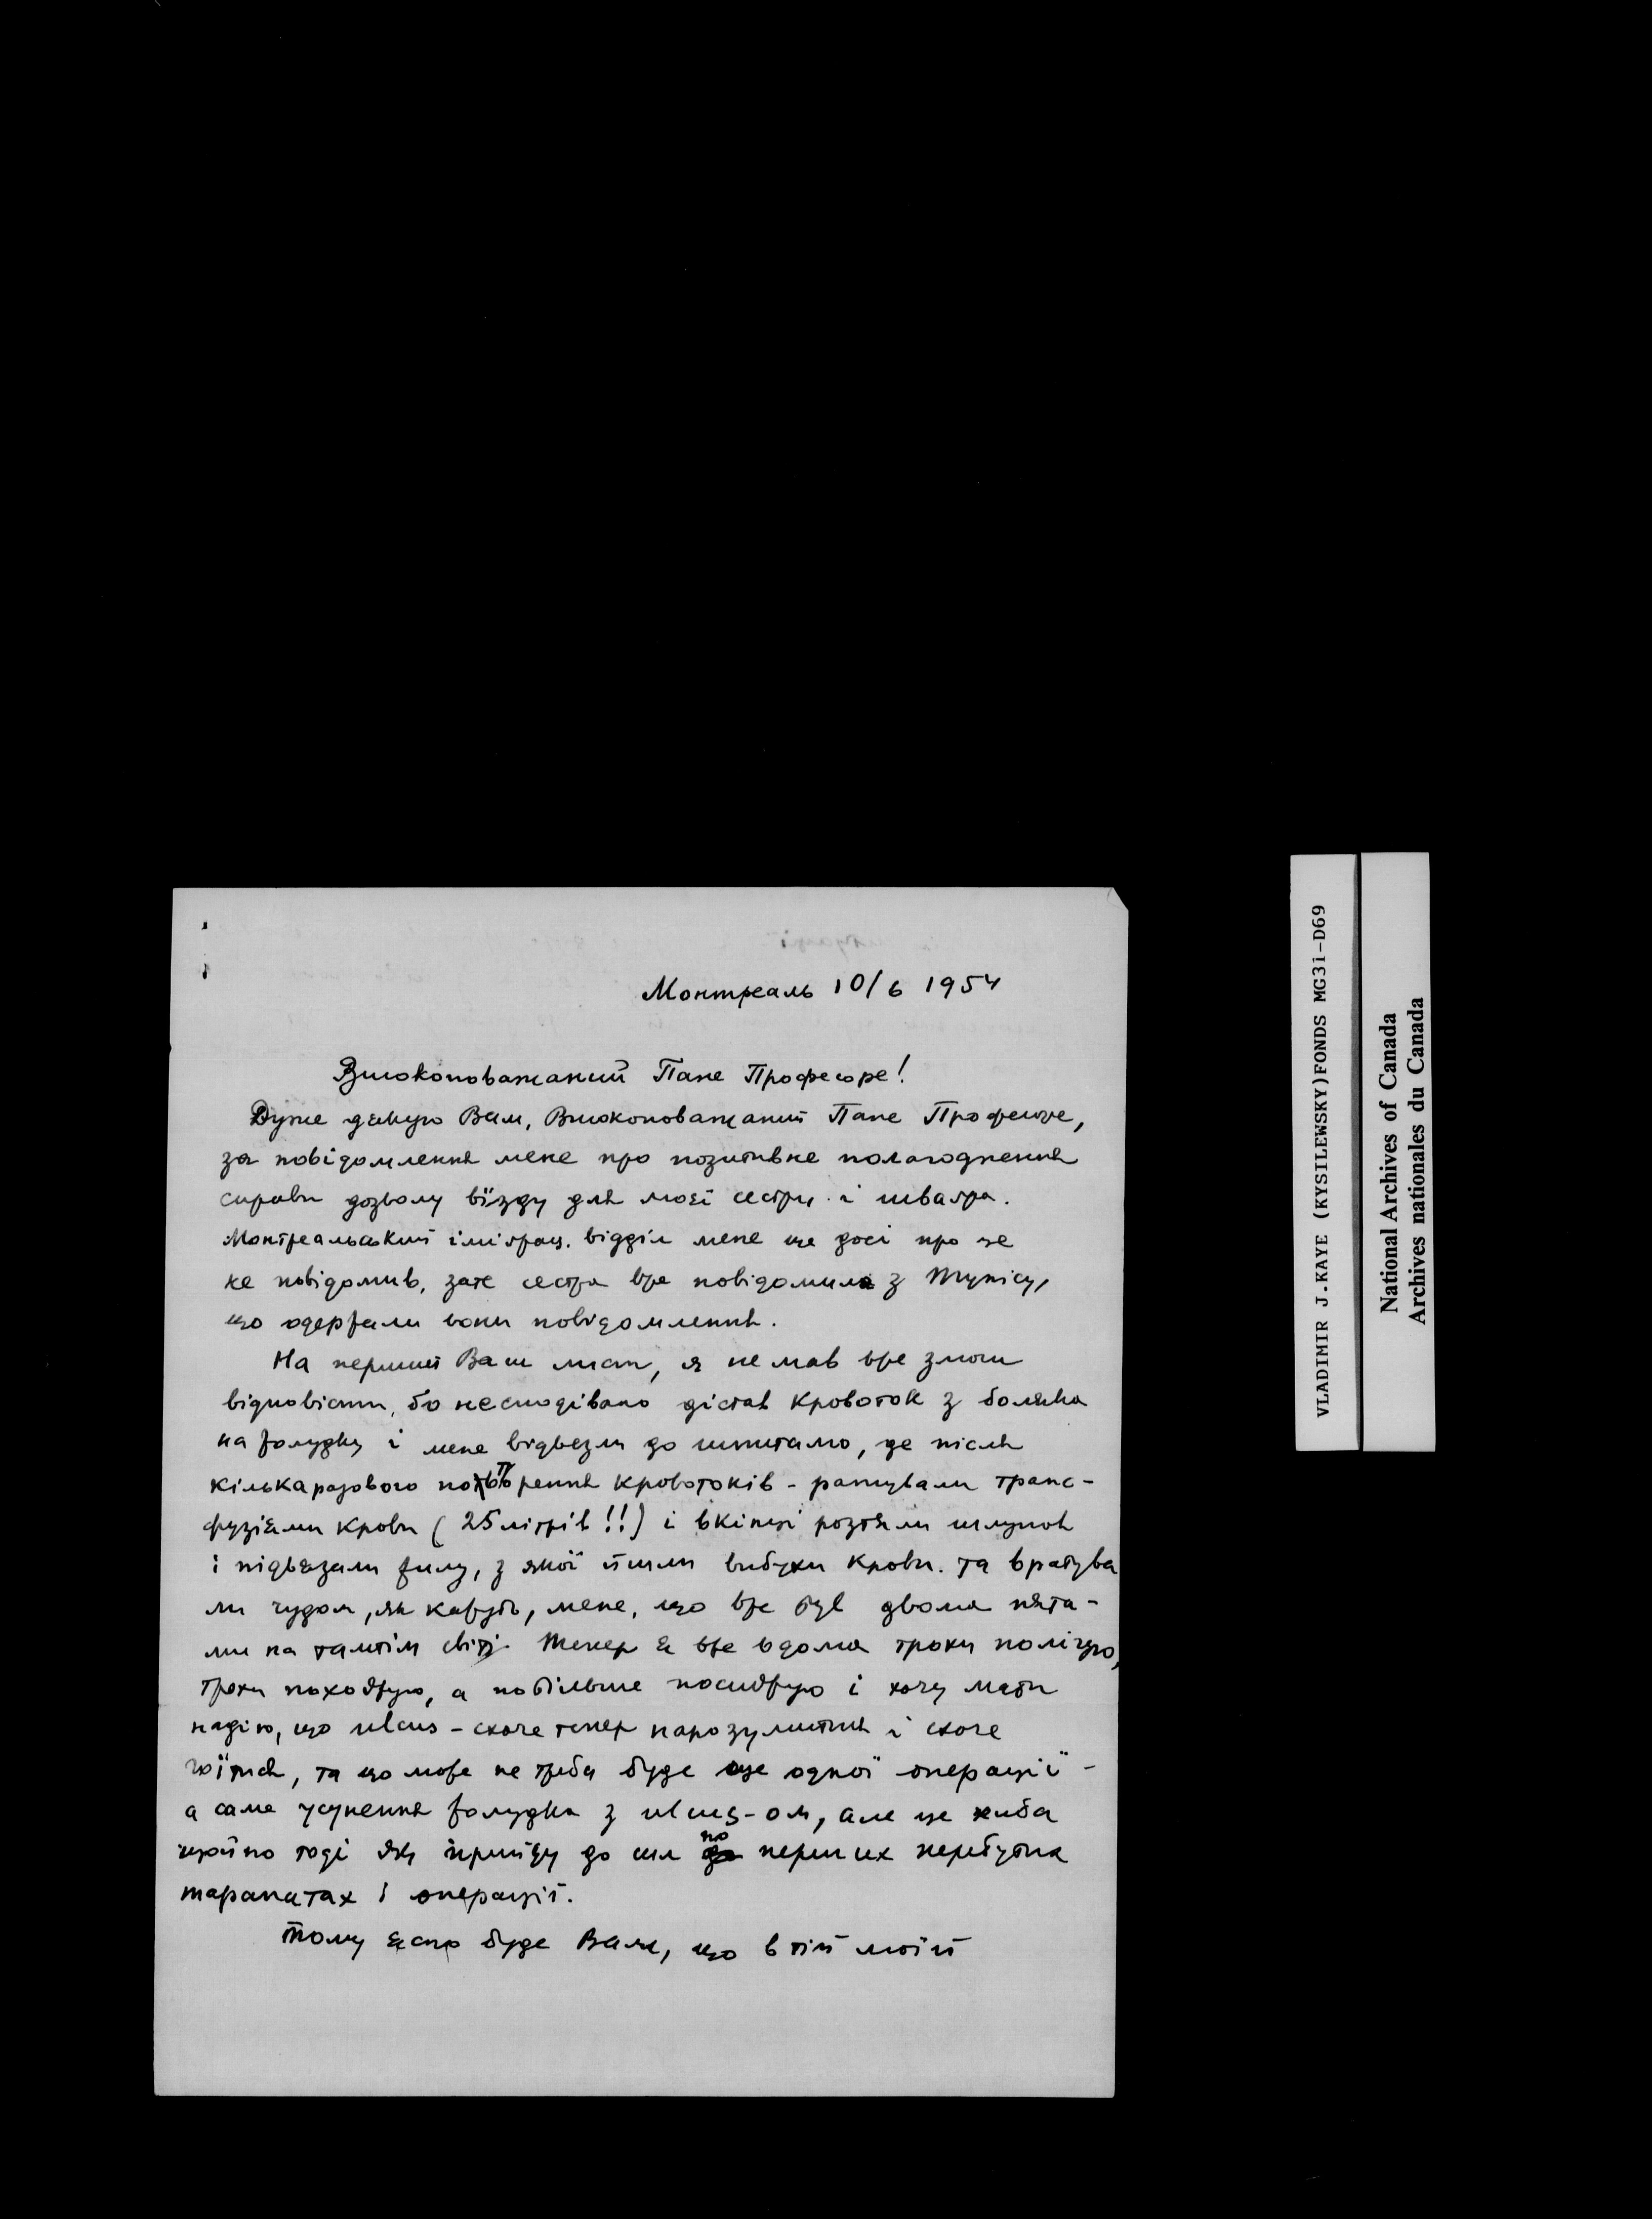 Монтреаль 10/6 1954
Високоповажаний Пане Професоре!
Дуже дякую Вам, Високоповажаний Пане Професоре,
за повідомлення мене про позитивне полагодження
справи дозволу вїзду для моєї сестри і швагра.
Монтреальський іміграц. відділ мене ще досі про це
не повідомив, зате сестра вже повідомила з Тунісу,
що одержали вони повідомлення.
На перший Ваш лист, я не мав вже змоги
відповісти, бо несподівано дістав кровоток з боляка
на жолудку і мене відвезли до шпиталю, де після
кількаразового повторення кровотоків - ратували транс-
фузіями крови (25 літрів!!) і вкінці розтяли шлунок
і підвязали жилу, з якої йшли вибухи крови. Та вратува
ли чудом, як кажуть, мене, що вже був двома пята-
ми на тамтім світі. Тепер я вже вдома трохи полежу,
трохи походжую, а побільше посиджую і хочу мати
надію, що ulcus - схоче тепер нарозумитися і схоче
гоїтися, та що може не треба буде ще одної операції -
а саме усунення жолудка з ulcus-ом, але це хиба
щойно тоді як прийду до сил по перших перебутих
тарапатах і операції.
Тому ясно буде Вам, що в тій моїй
VLADIMIR J.KAYE (KYSILEWSKY)FONDS MG31-D69
National Archives of Canada
Archives nationales du Canada